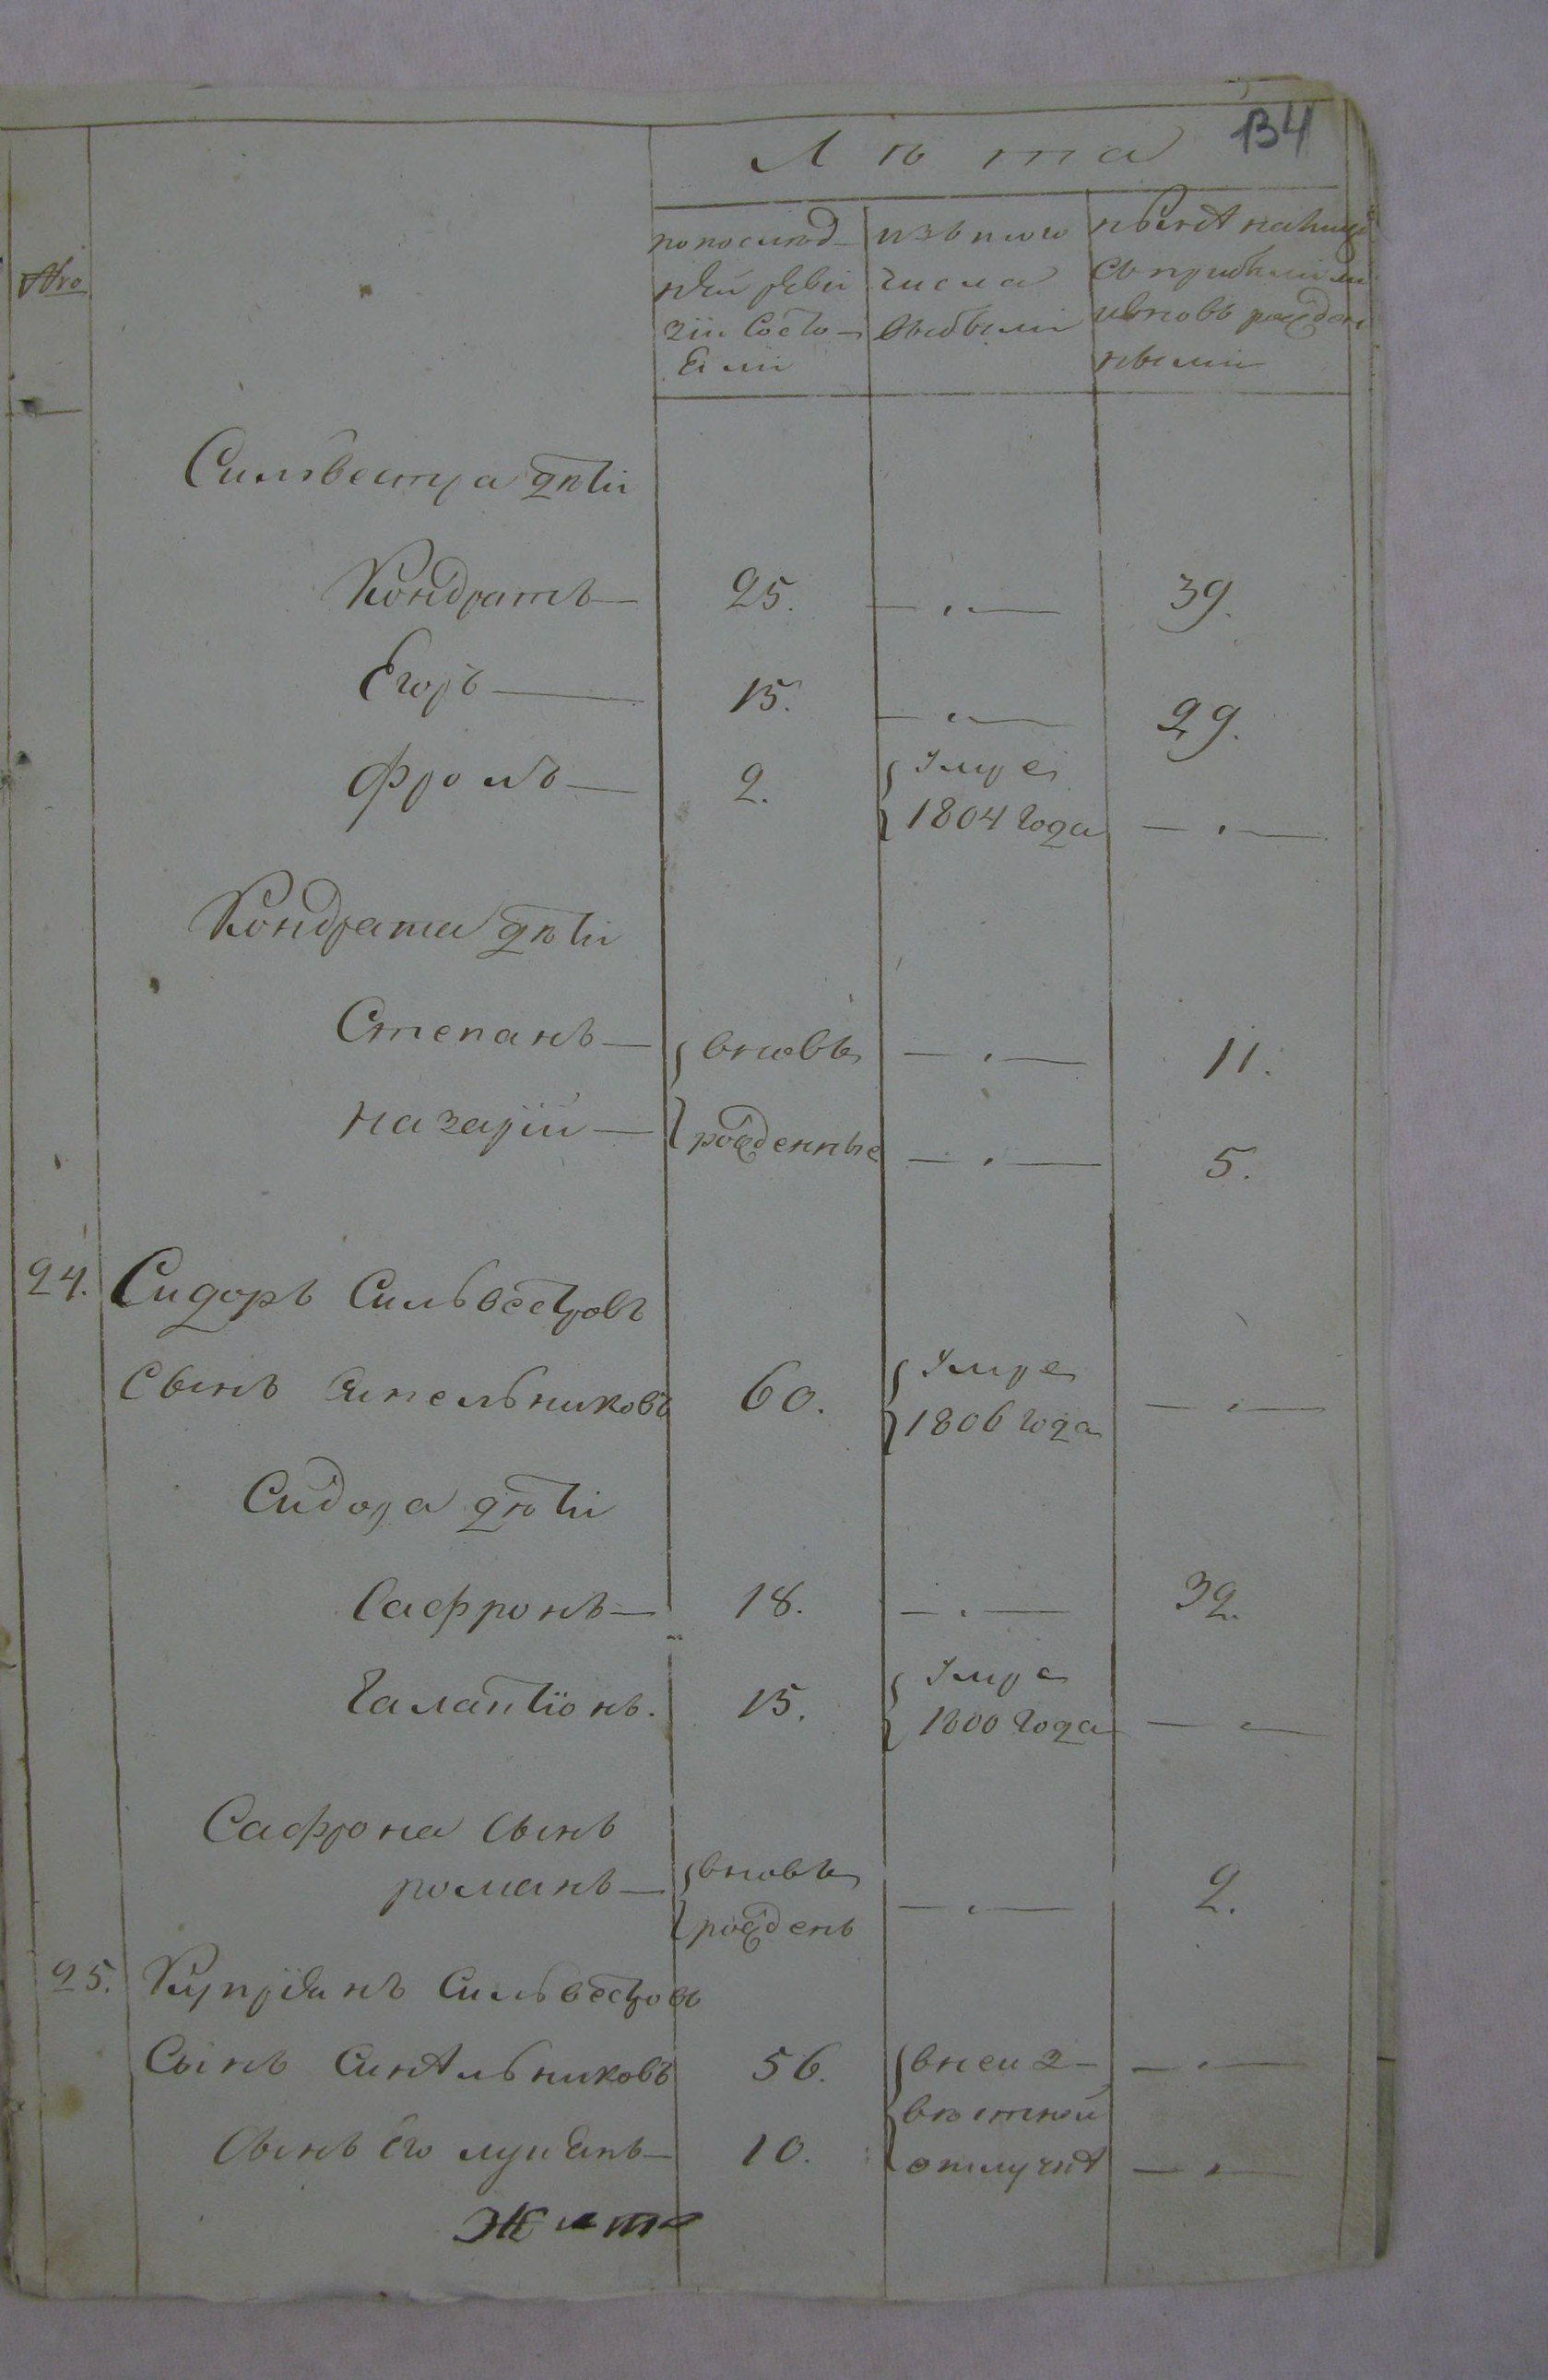 134
Лѣта
№
по послѣд-
ней реви
зіи состо-
яли
изъ того
числа
выбыли
ныне налицо
съ прибылыми
и вновь рожден
ными
Сильвестра дѣти
Кондратъ — 25. — 39.
Егоръ — 15. — 29.
Фролъ — 2. умре
1804 года —
Кондрата дѣти
Степанъ — вновь — 11.
Назарій — рожденные — 5.
24. Сидоръ Сильвестровъ
сынъ Синельниковъ 60. умре
1806 года —
Сидора дѣти
Сафронъ — 18. — 32.
Галактіонъ. 15. умре
1800 года —
Сафрона сынъ
Романъ — вновь
рожденъ — 2.
25. Купріянъ Сильвестровъ
сынъ Синельниковъ 56. в неиз- —
вѣстной
сынъ его Лукьянъ — 10. отлучке —